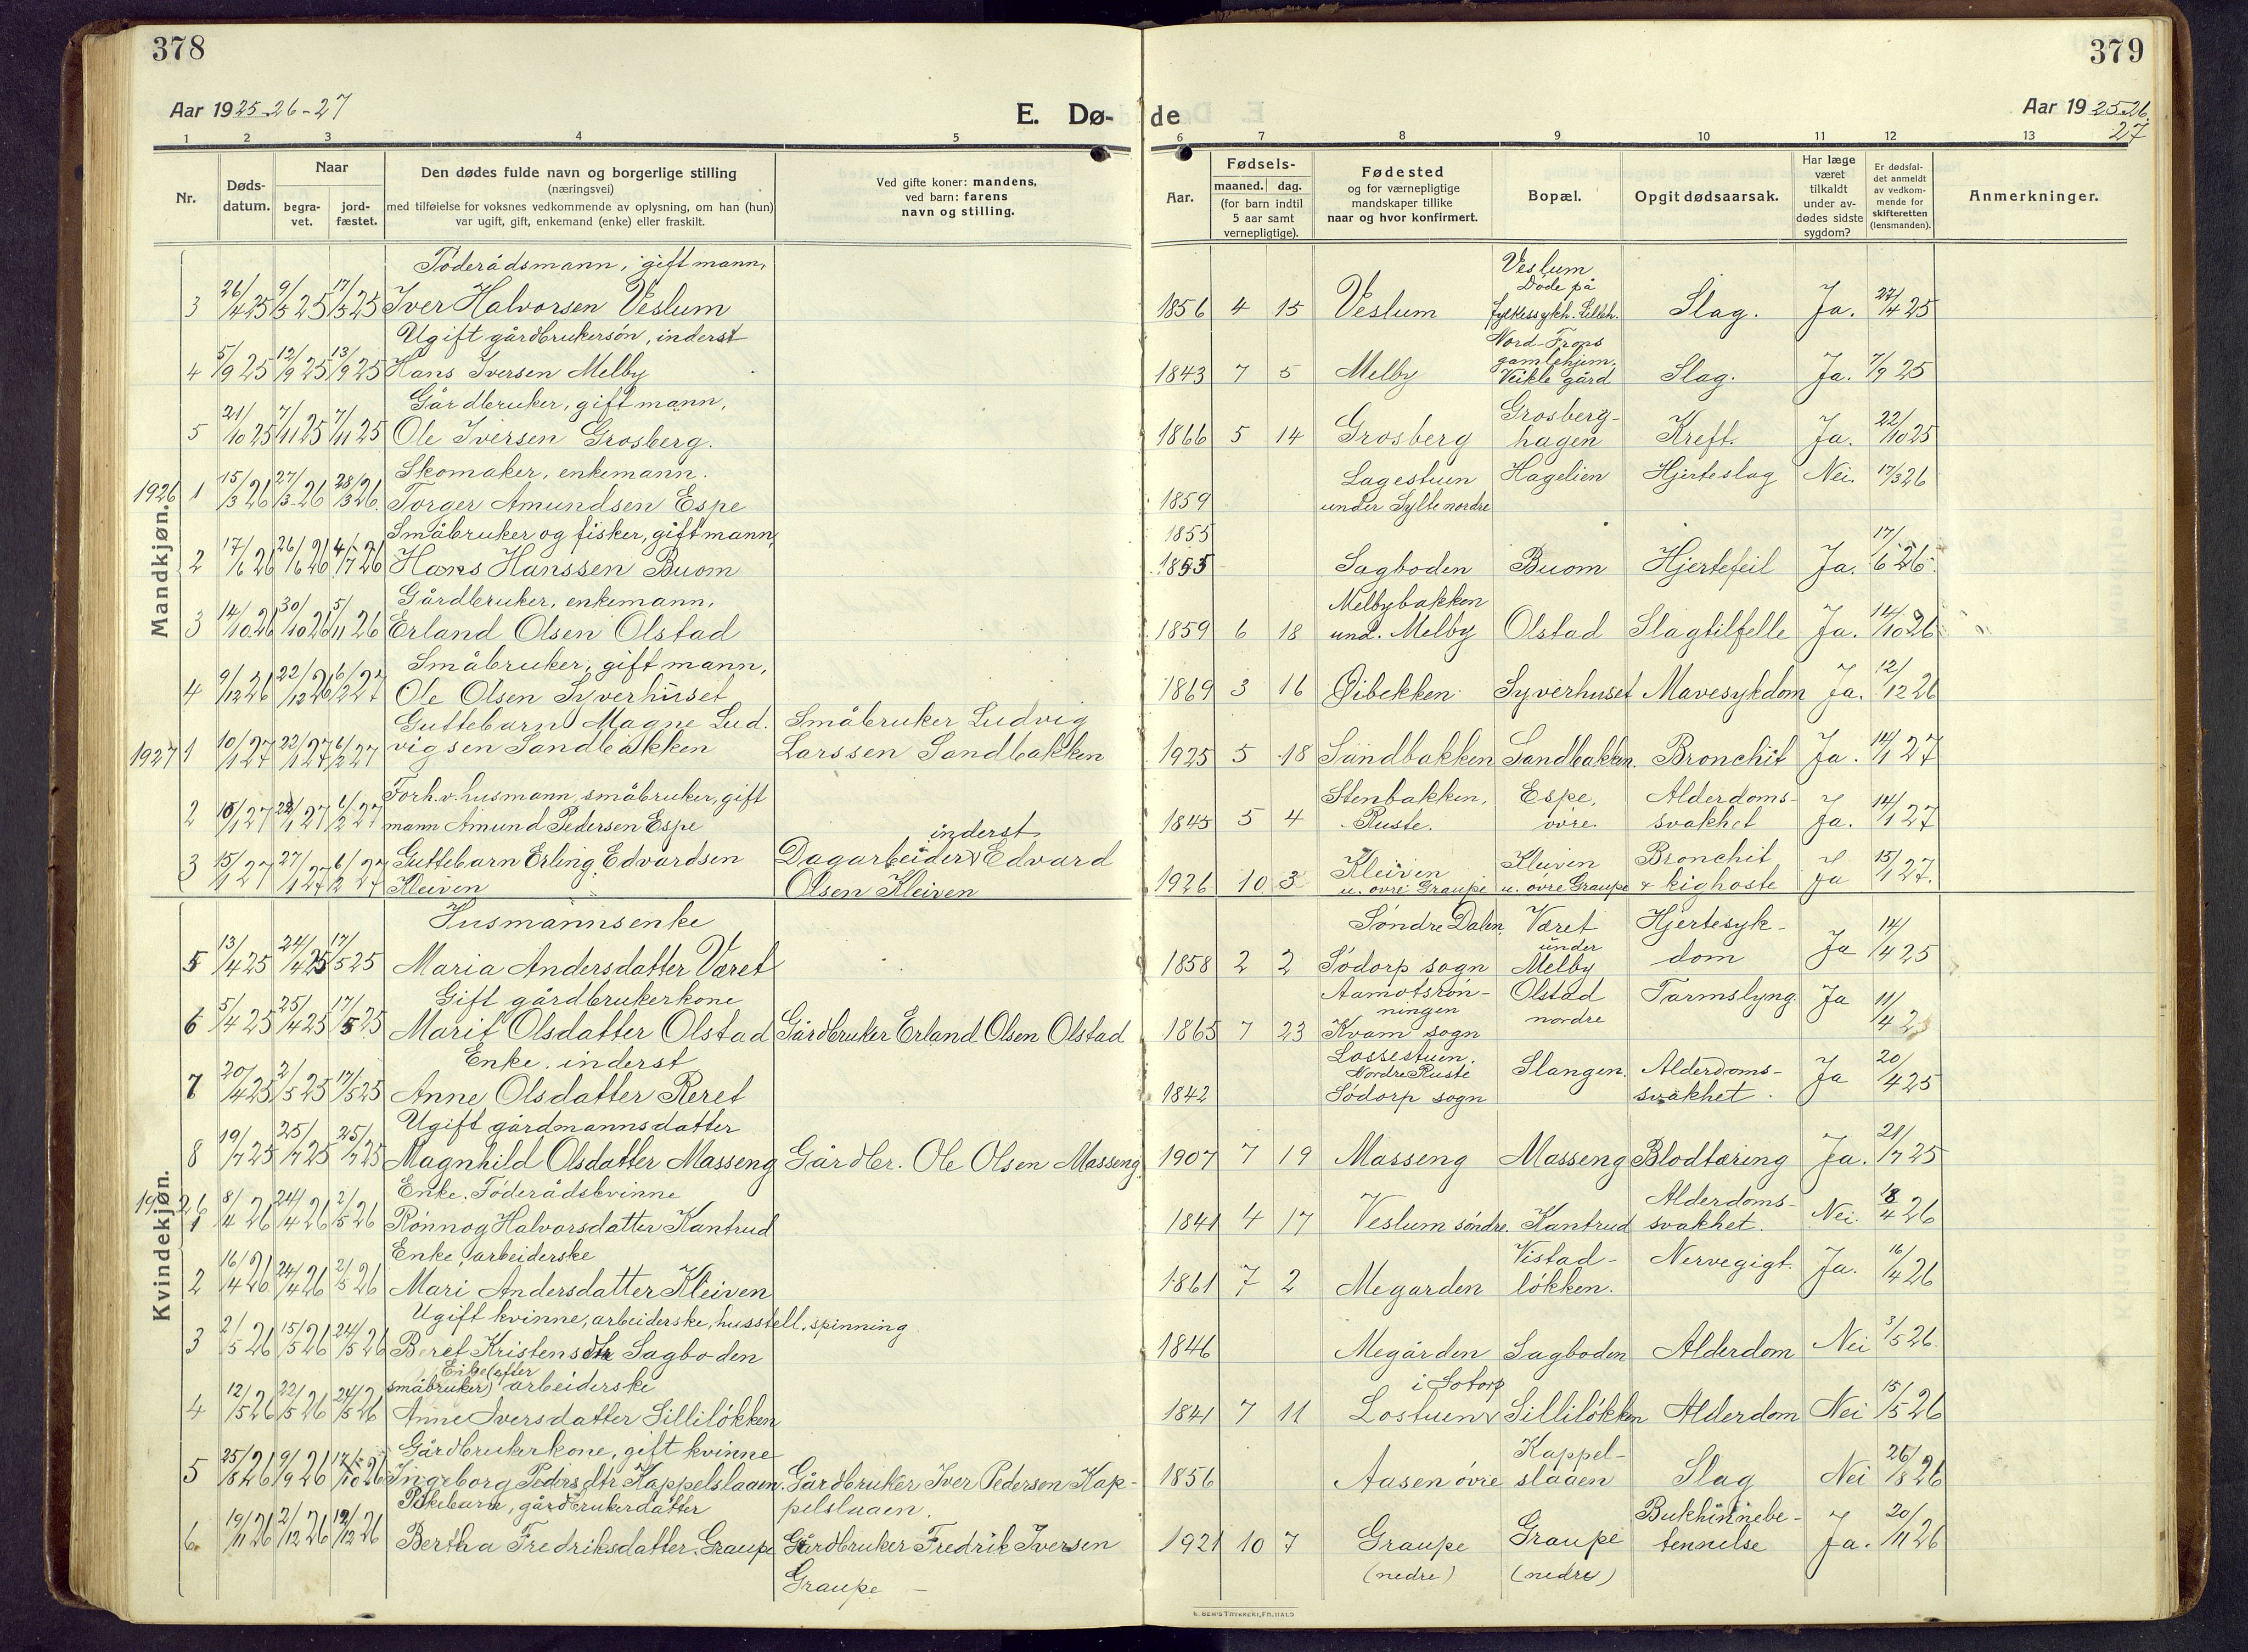 378
Aar 1925-26-27
E. Dø-
1 2 3 4 5
Nr.
Døds-
datum.
Naar
begra-
vet.
jord-
fæstet.
Den dødes fulde navn og borgerlige stilling
(næringsvei)
med tilføielse for voksnes vedkommende av oplysning, om han (hun)
var ugift, gift, enkemand (enke) eller fraskilt.
Ved gifte koner: mandens,
ved barn: farens
navn og stilling.
Mandkjøn.
Föderådsmann, gift mann,
3 26/4 25 9/5 25 17/5 25 Iver Halvorsen Veslum
Ugift gårdbrukersön, inderst
4 5/9 25 12/9 25 13/9 25 Hans Iversen Melby
Gårdbruker, gift mann,
5 21/10 25 7/11 25 7/11 25 Ole Iversen Grosberg.
Skomaker, enkemann.
1926 1 15/3 26 27/3 26 28/3 26. Torger Amundsen Espe
Småbruker og fisker, gift mann,
2 17/6 26 26/6 26 4/7 26 Hans Hanssen Buom
Gårdbruker, enkemann,
3 14/10 26 30/10 26 5/11 26 Erland Olsen Olstad
Småbruker, gift mann,
4 9/12 26 22/12 26 6/2 27 Ole Olsen Syverhuset
Guttebarn Magne Lud. Småbruker Ludvig
1927 1 10/1 27 22/1 27 6/2 27 vigsen Sandbakken Larssen Sandbakken
Forh.v. husmann, småbruker, gift
2 10/1 27 22/1 27 6/2 27 mann Amund Pedersen Espe
inderst
3 15/1 27 27/1 27 6/2 27 Guttebarn Erling Edvardsen Dagarbeider v Edvard
Kleiven Olsen Kleiven
Kvindekjøn.
Husmannsenke
5 13/4 25 24/4 25 17/5 25 Maria Andersdatter Været
Gift gårdbrukerkone
6 5/4 25 25/4 25 17/5 25 Marit Olsdatter Olstad Gårdbruker Erland Olsen Olstad
Enke, inderst
7 20/4 25 2/5 25 17/5 25 Anne Olsdatter Reret
Ugift gårdmannsdatter
8 19/7 25 25/7 25 25/7 25 Magnhild Olsdatter Masseng Gårdbr. Ole Olsen Masseng.
Enke. Föderådskvinne
1926 1 8/4 26 24/4 26 2/5 26 Rönnog Halvorsdatter Kantrud
Enke, arbeiderske
2 16/4 26 24/4 26 2/5 26 Mari Andersdatter Kleiven
Ugift kvinne, arbeiderske, husstell, spinning
3 2/5 26 15/5 26 24/5 26 Beret Kristensdtr Sagboden
Enke (efter
småbruker) arbeiderske
4 12/5 26 22/5 26 24/5 26 Anne Iversdatter Sillilökken
Gårdbrukerkone, gift kvinne
5 25/8 26 9/9 26 17/10 26 Ingeborg Pedersdtr Kappelslaaen. Gårdbruker Iver Pedersen Kap-
Pikebarn, gårdbrukerdatter pelslaaen.
6. 19/11 26 2/12 26 12/12 26 Bertha Fredriksdatter Graupe Gårdbruker Fredrik Iversen
Graupe –
379
de
Aar 1925-26.
27
6 7 8 9 10 11 12 13
Aar.
Fødsels-
maaned. dag.
(for barn indtil
5 aar samt
vernepligtige).
Fødested
og for værnepligtige
mandskaper tillike
naar og hvor konfirmert.
Bopæl.
Opgit dødsaarsak.
Har læge
været
tilkaldt
under av-
dødes sidste
sygdom?
Er dødsfal-
det anmeldt
av vedkom-
mende for
skifteretten
(lensmanden).
Anmerkninger.
Veslum
Döde på
1856 4 15 Veslum fylkessykh. Lilleh. Slag. Ja. 27/4 25
Nord-Frons
gamlehjem,
1843 7 5 Melby Veikle gård Slag. Ja. 7/9 25
Grosberg-
1866 5 14 Grosberg hagen Kreft. Ja. 22/10 25
Lagestuen Hagelien Hjerteslag Nei. 17/3 26
1859 under Sylte nordre
1855
1855 Sagboden Buom Hjertefeil Ja. 17/6 26
Melbybakken
1859 6 18 und. Melby Olstad Slagtilfelle Ja. 14/10 26
1869 3 16 Öibekken Syverhuset Mavesykdom Ja. 12/12 26
1925 5 18 Sandbakken Sandbakken. Bronchit Ja. 14/1 27
Stenbakken, Espe, Alderdoms-
1845 5 4 Ruste. övre. svakhet Ja. 14/1 27
Kleiven Kleiven Bronchit
1926 10 3 u. övre Graupe u. övre Graupe & kighoste Ja 15/1 27.
Söndre Dalen, Været Hjertesyk-
under
1858 2 2 Södorp sogn Melby dom Ja 14/4 25
Aamotsrön- Olstad Tarmslyng. Ja 11/4 25
ningen nordre
1865 7 23 Kvam sogn
Lossestuen.
Nordre Ruste Slangen. Alderdoms- Ja 20/4 25
1842 Södorp sogn svakhet.
1907 7 19 Masseng Masseng Blodtæring Ja. 21/7 25
Alderdoms-
1841 4 17 Veslum söndre. Kantrud svakhet. Nei. 18/4 26
Vistad- Nervegigt. Ja. 16/4 26
1861 7 2 Megarden lökken.
1846 Megården Sagboden Alderdom Nei 3/5 26.
i Sotorp
1841 7 11 Lostuen v Sillilökken Alderdom Nei 15/5 26
Kappel-
1856 Aasen övre slaaen Slag Nei 26/8 26
Bukhinnebe-
1921 10 7 Graupe Graupe tennelse Ja. 20/11 26
(nedre) (nedre)